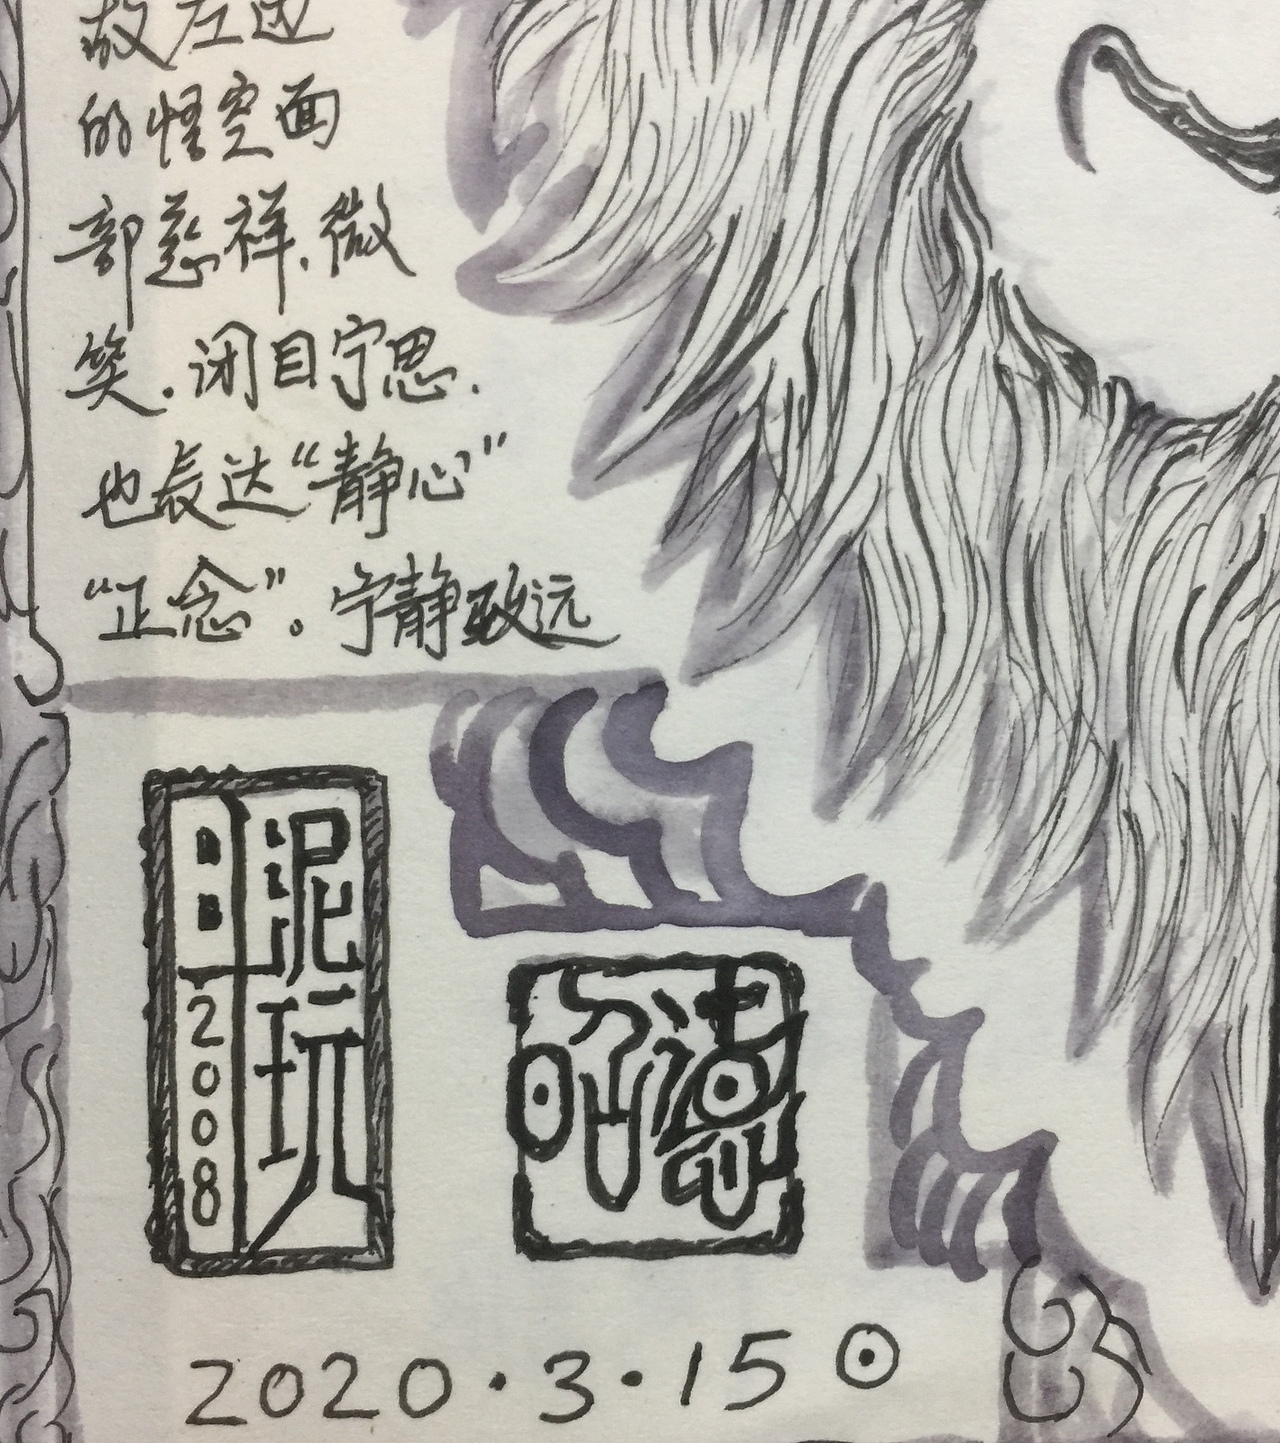 故左边
的悟空面
部慈祥.微
笑.闭目宁思.
也表达“静心”
“正念”。宁静致远
泥玩
2008
2020·3·15